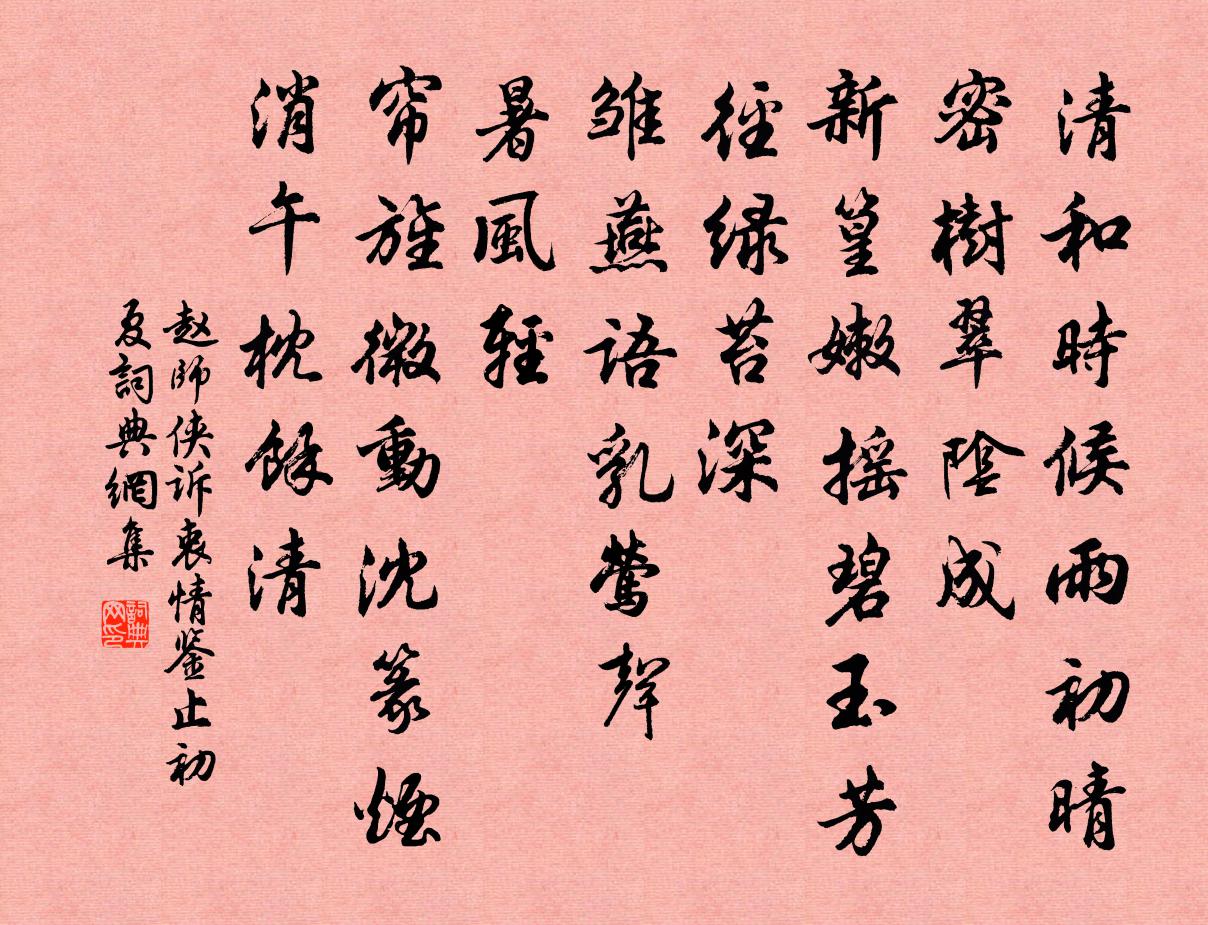 清和時候雨初晴
密樹翠陰成
新篁嫩摇碧玉芳
徑緑苔深
雏燕語乳莺聲
暑風輕
帘旌微動沈篆煙
消午枕餘清
赵師侠诉衷情鉴止初
夏詞典網集
詞典网印